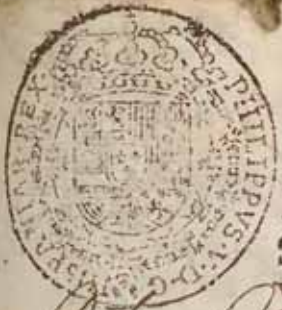 PHILIPPVS·V·D·G· HISPANIAR·REX